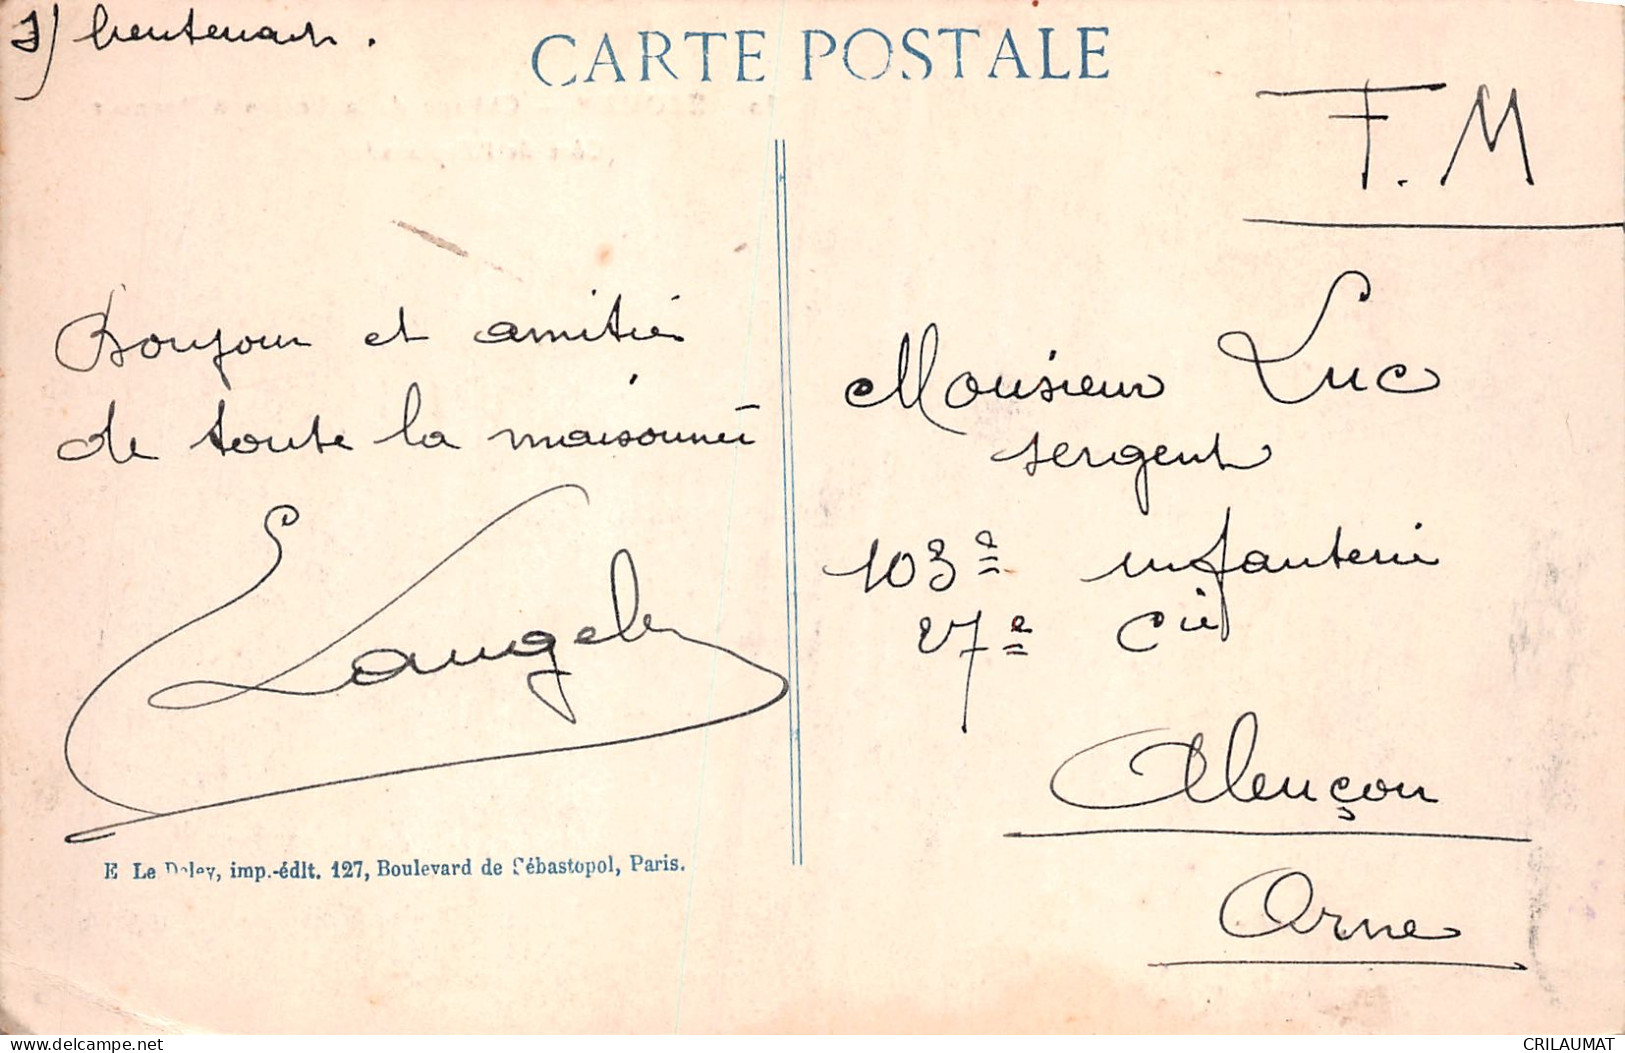 lieutenant.
CARTE POSTALE
F.M
Bonjour et amitiés
de toute la maisonnée
Monsieur Luc
sergent
103e infanterie
27e Cie
Alençon
Orne
E Le Deley, imp.-édit. 127, Boulevard de Sébastopol, Paris.
delcampe.net
CRILAUMAT